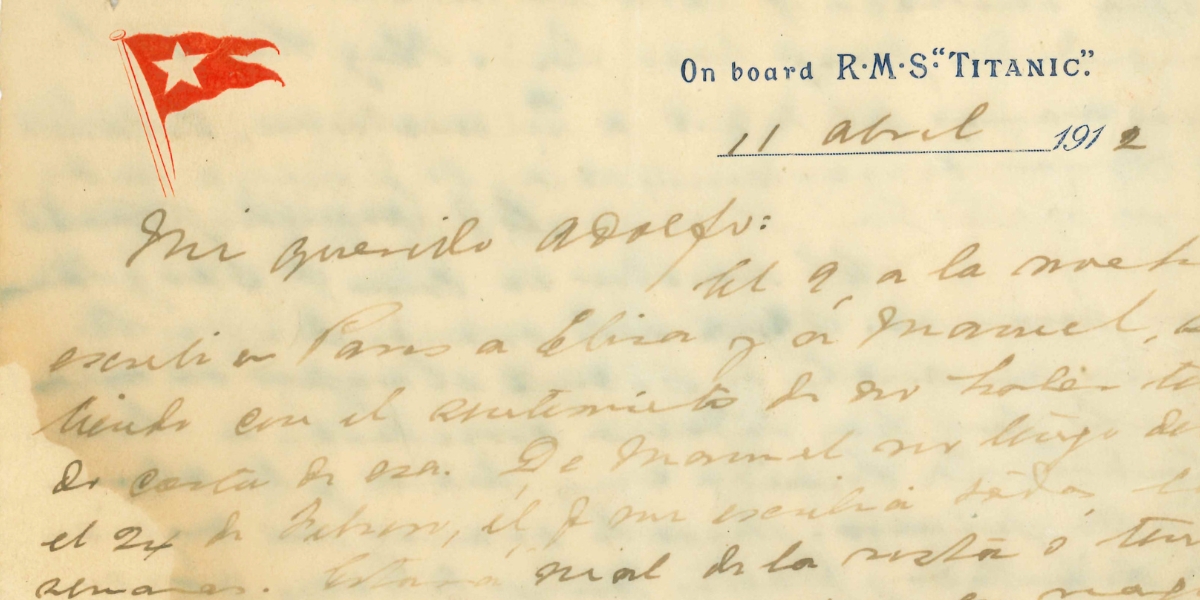 On board R·M·S·"TITANIC".
11 abril 1912
Mi querido Adolfo:
El 9, a la noche
escribí en Paris a Elisa y á Manuel,
con el sentimiento de no haber
de carta de esa. De Manuel no tengo
el 24 de Febrero, él q me escribia todas
semanas. Estara mal de la vista o